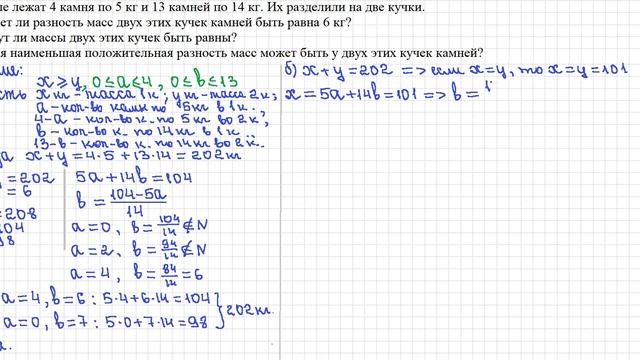 ле лежат 4 камня по 5 кг и 13 камней по 14 кг. Их разделили на две кучки.
ет ли разность масс двух этих кучек камней быть равна 6 кг?
ут ли массы двух этих кучек быть равны?
я наименьшая положительная разность масс может быть у двух этих кучек камней?
ие:
x ⩾ y, 0 ≤ a ≤ 4, 0 ≤ b ≤ 13
сть x кг - масса 1 к.; y кг - масса 2 к.;
a - кол-во камн по 5кг в 1 к.
4-a - кол-во к. по 5 кг во 2 к.;
b - кол-во к. по 14 кг в 1 к.
13-b - кол-во к. по 14 кг во 2 к.
а x+y = 4·5 + 13·14 = 202 кг
= 202
= 6
= 208
04
98
5a + 14b = 104
b = (104-5a)/14
a=0, b = 104/14 ∉ N
a=2, b = 94/14 ∉ N
a=4, b = 84/14 = 6
a=4, b=6 : 5·4+6·14 = 104
a=0, b=7 : 5·0+7·14 = 98
} 202 кг.
а.
б) x+y = 202 => если x=y, то x=y=101
x = 5a+14b = 101 => b =